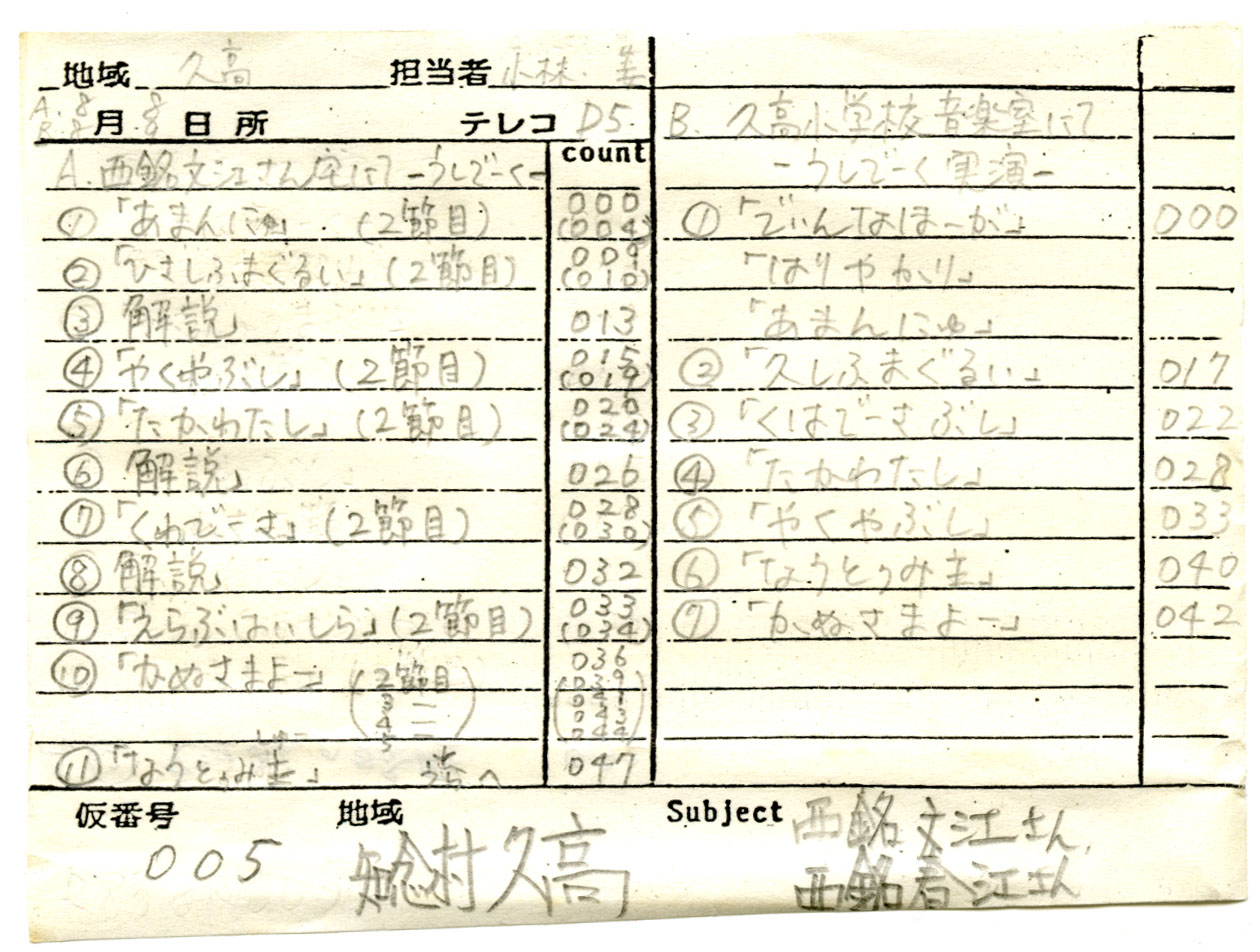 地域 久高 担当者 小林・姜
A. 8 B. 8 月 8 8 日 所 テレコ D5
count
A. 西銘文江さん宅にて -うしでーく-
① 「あまんにゅ」 (2節目) 000 (004)
② 「ひさしふまぐるい」 (2節目) 009 (010)
③ 解説」 013
④ 「やくやぶし」 (2節目) 015 (019)
⑤ 「たかわたし」 (2節目) 020 (024)
⑥ 解説」 026
⑦ 「くわでーさ」 (2節目) 028 (030)
⑧ 解説」 032
⑨ 「えらぶはいしら」 (2節目) 033 (034)
⑩ 「かぬさまよー」 (2節目 036 (039
3 — 041
4 — 043
5 — 044)
⑪ 「なうとぅみ主」 047
B. 久高小学校音楽室にて
-うしでーく実演-
① 「でぃんなほーが」 000
「はりやかり」
「あまんにゅ」
② 「久しふまぐるい」 017
③ 「くはでーさぶし」 022
④ 「たかわたし」 028
⑤ 「やくやぶし」 033
⑥ 「なうとぅみ主」 040
⑦ 「かぬさまよー」 042
仮番号 地域 Subject
005 知念村久高 西銘文江さん,
西銘春江さん